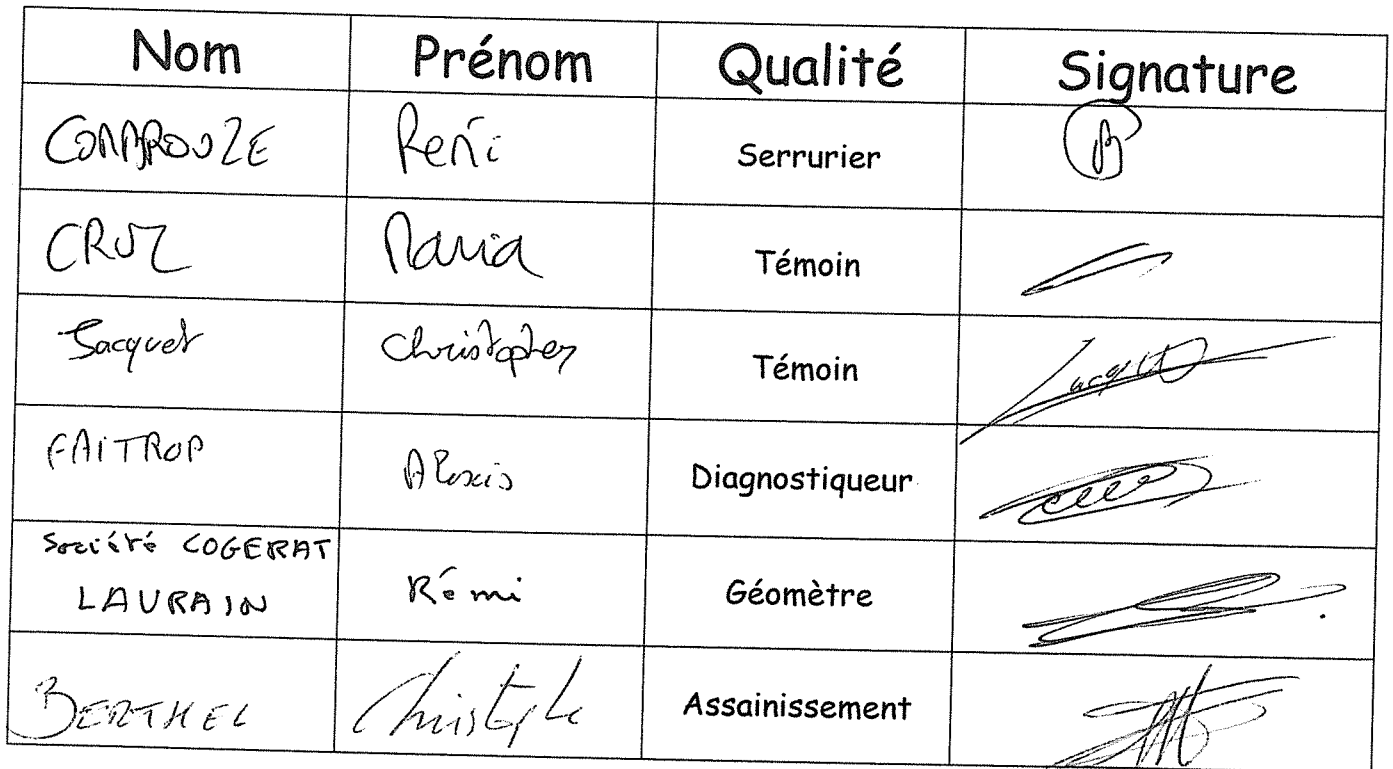 Nom Prénom Qualité Signature
COMBROUZE René Serrurier
CRUZ Maria Témoin
Jacquet Christopher Témoin
FAITROP Alexis Diagnostiqueur
Société COGERAT
LAURAIN Rémi Géomètre
BERTHEL Christophe Assainissement